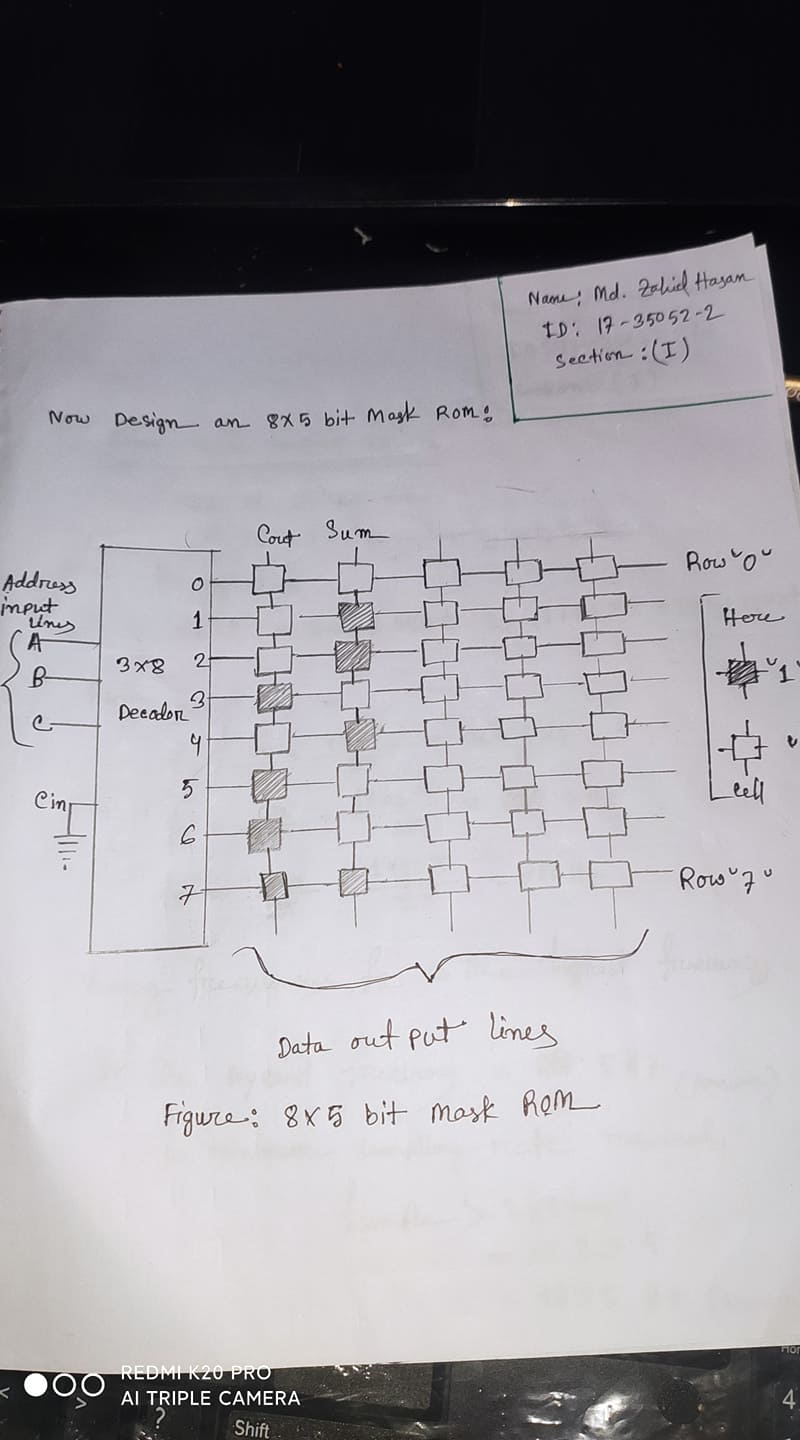 Name: Md. Zahid Hasan
ID: 17-35052-2
Section: (I)
Now Design an 8x5 bit Mask Rom:
Cout Sum
Address
input
lines
A
B
C
Cin
3x8
Decador
0
1
2
3
4
5
6
7
Row "0"
Here
"1"
Cell
Row "7"
Data out put lines
Figure: 8x5 bit mask ROM
REDMI K20 PRO
AI TRIPLE CAMERA
?
Shift
4